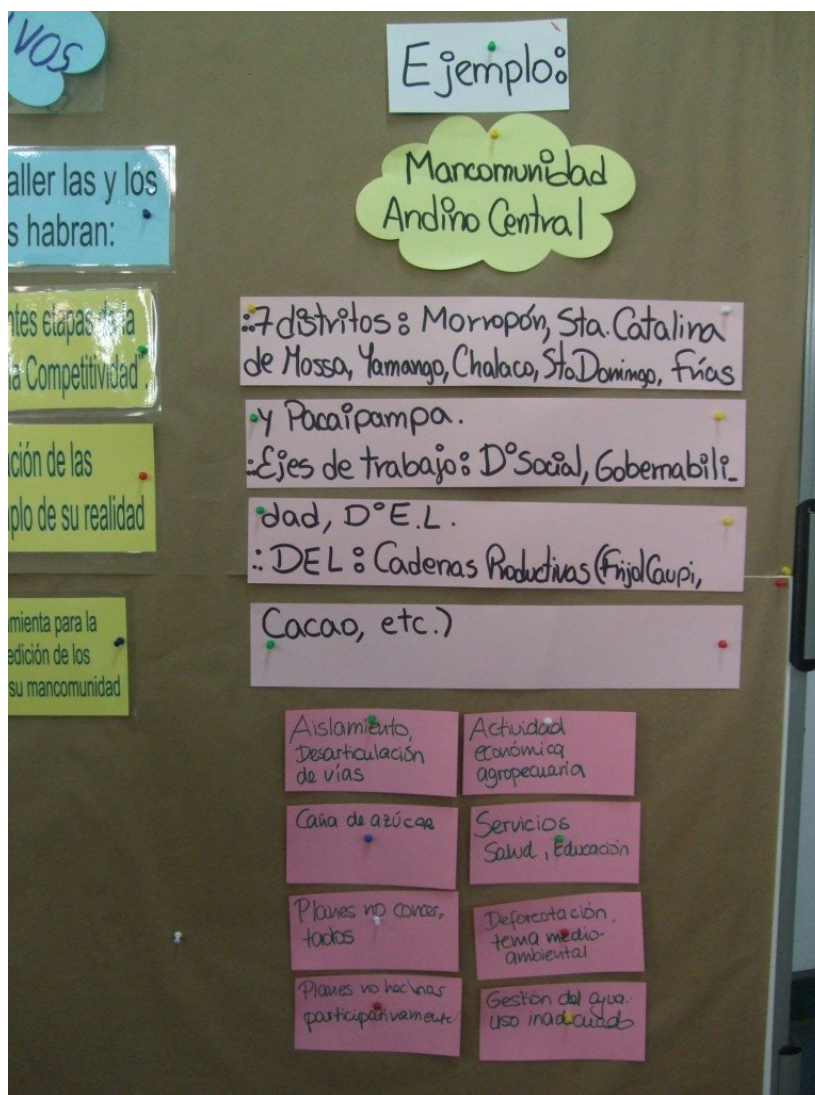 VOS
aller las y los
s habran:
ntes etapas de la
a Competitividad".
ción de las
plo de su realidad
mienta para la
edición de los
su mancomunidad
Ejemplo:
Mancomunidad
Andino Central
:.7 distritos: Morropón, Sta. Catalina
de Mossa, Yamango, Chalaco, Sto Domingo, Frías
y Pacaipampa.
:.Ejes de trabajo: D°Social, Gobernabili_
dad, D°E.L.
:. DEL: Cadenas Productivas (Frijol Caupi,
Cacao, etc.)
Aislamiento,
Desarticulación
de vías
Actividad
económica
agropecuaria
Caña de azúcar
Servicios
Salud, Educación
Planes no concer-
tados
Deforestación,
tema medio-
ambiental
Planes no hechas
participativamente
Gestión del agua.
uso inadecuado